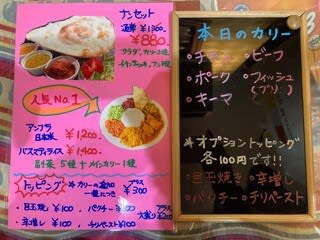 ナンセット
通常 ¥1,300
¥880
サラダ、カリー2種
人気No.1
アンブラ
日本米 ¥1,200
バスマティライス ¥1,400
副菜 5種 + メインカリー 1種
トッピング
※カリーの追加
一種につき
プラス
¥300
・目玉焼 ¥100
・パクチー ¥100
プラス
大盛り ¥200
・辛増し ¥100
・チリペースト ¥100
本日のカリー
・チキン ・ビーフ
・ポーク ・フィッシュ
(ブリ)
・キーマ
※オプショントッピング
各100円です!!
・目玉焼き・辛増し
・パクチー・チリペースト